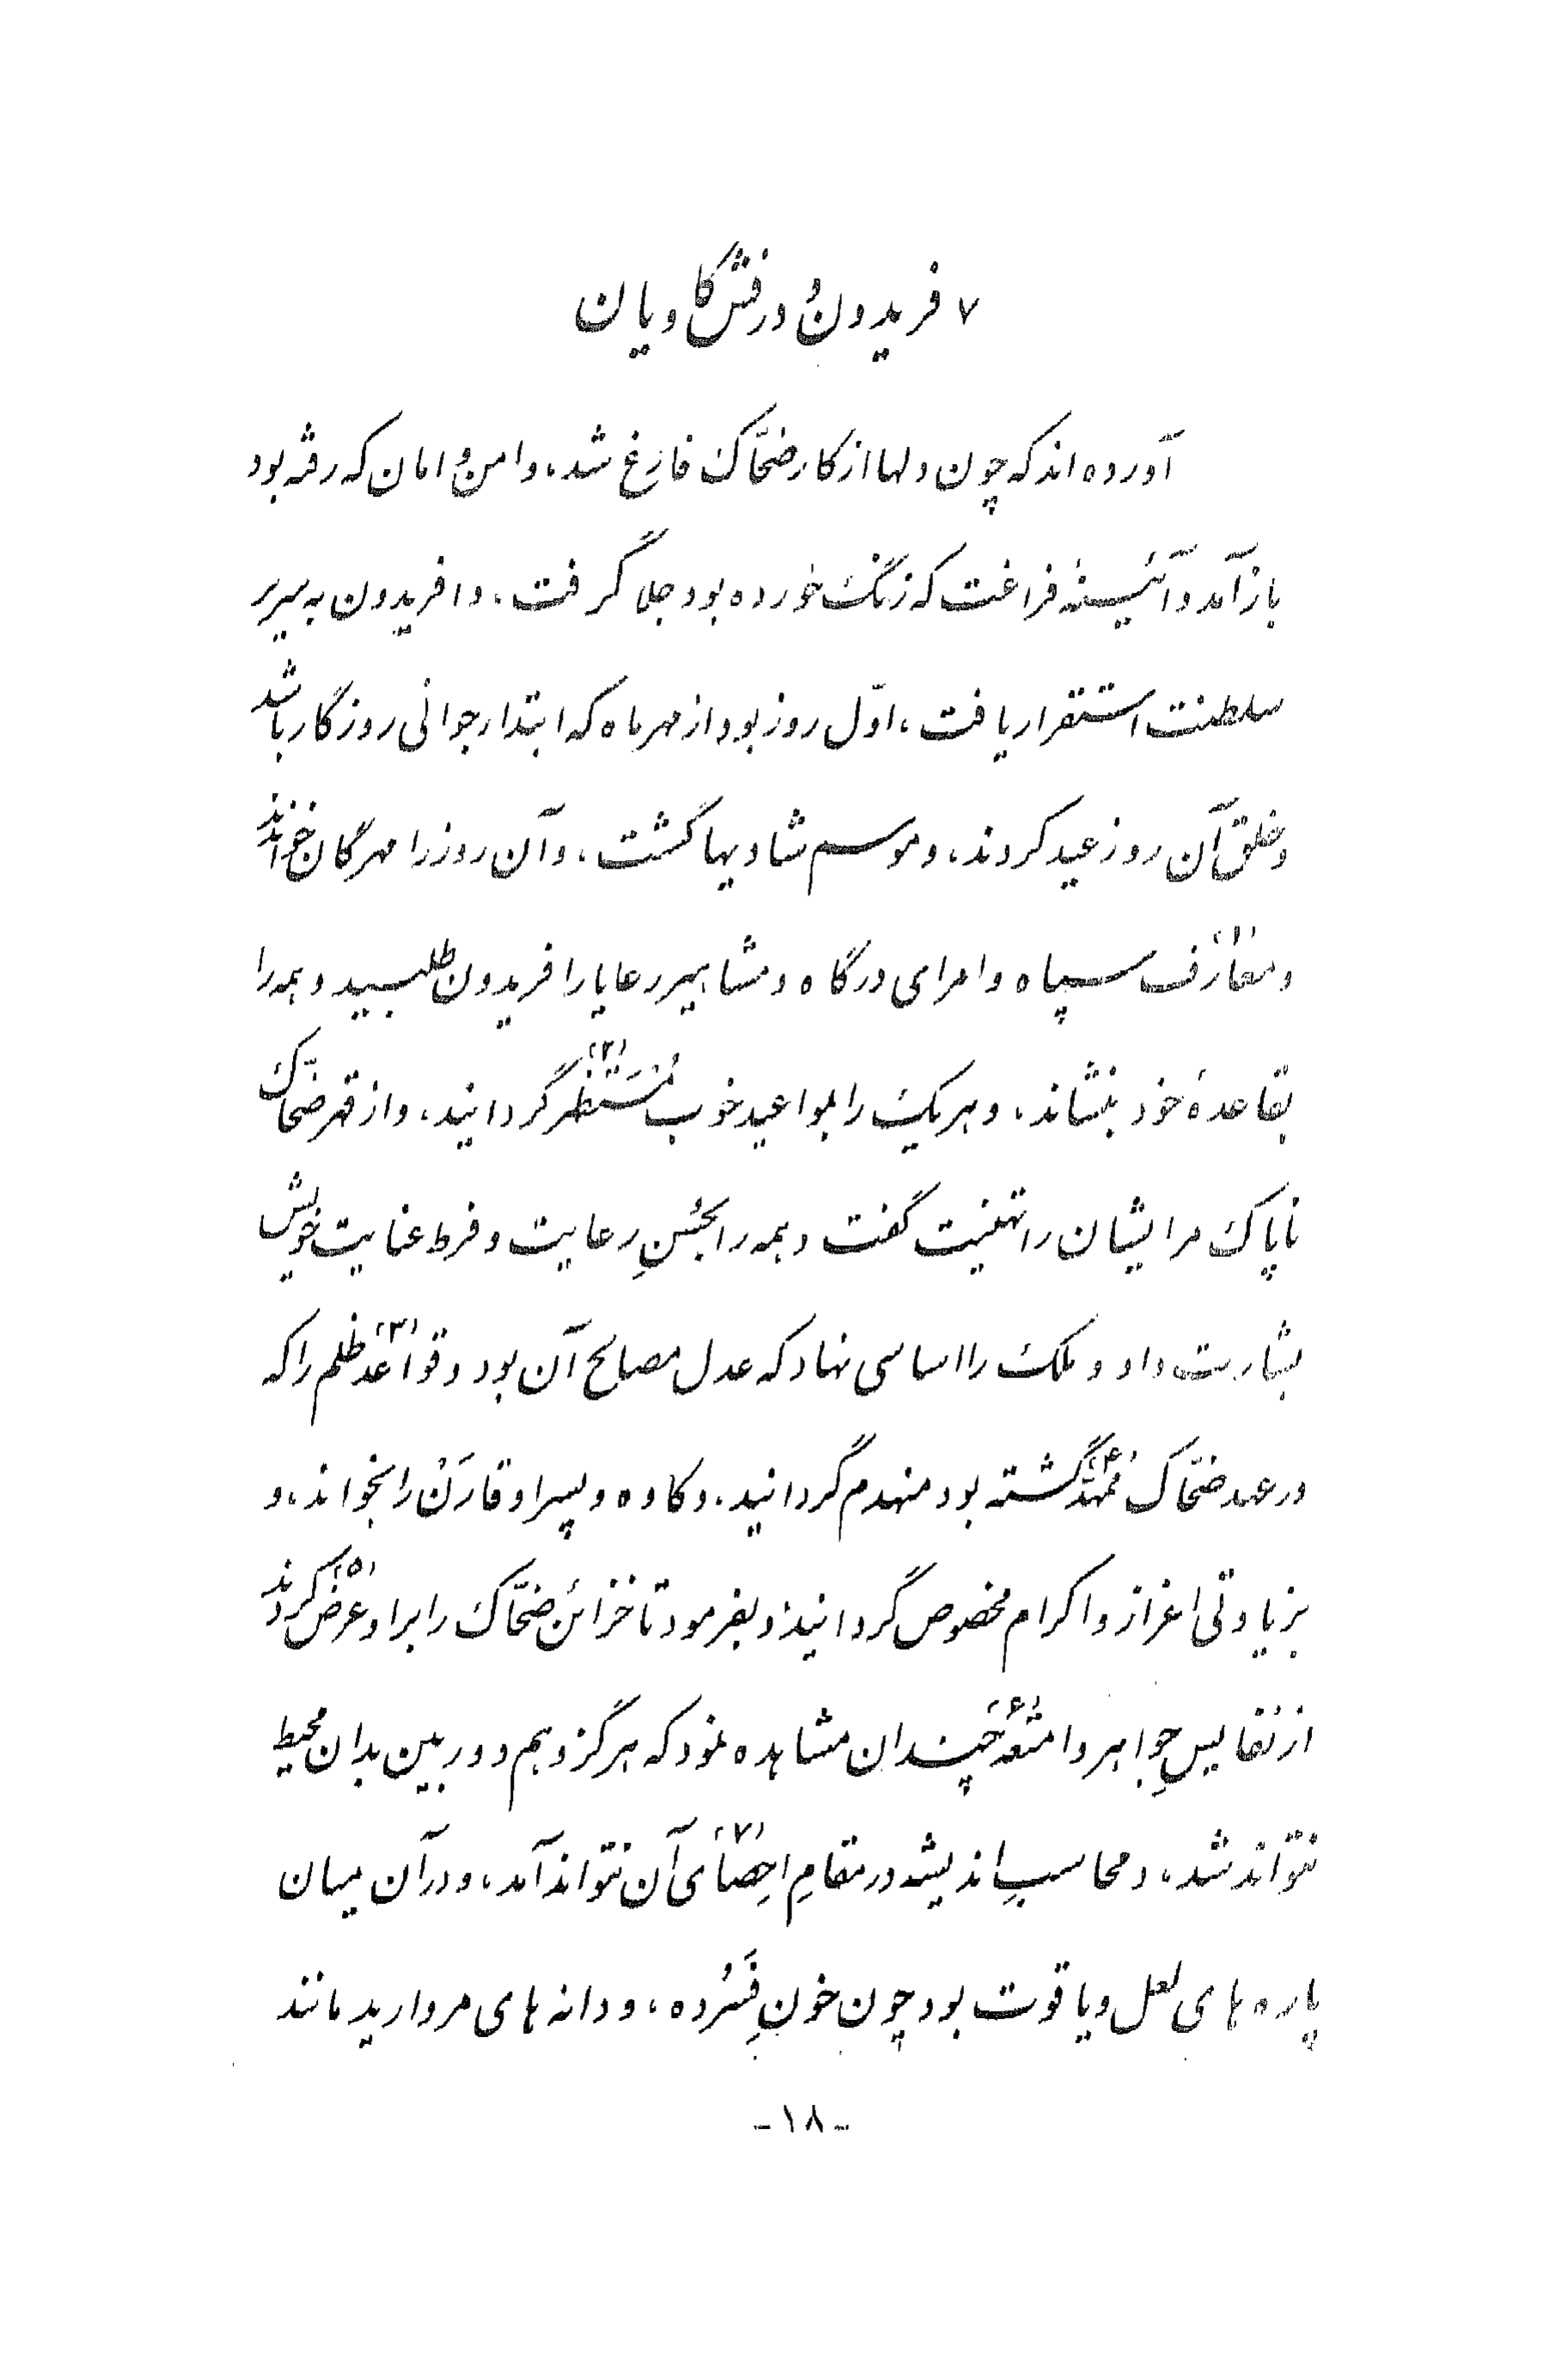 ۷ فریدون و درفش کاویان
آورده اند که چون دلها از کار ضحّاک فارغ شد، و امن و امان که رفته بود
باز آمد و آئینهٔ فراغت که زنگ خورده بود جلا گرفت، و افریدون به سریر
سلطنت استقرار یافت، اوّل روز بود از مهرماه که ابتدار جوانی روزگار باشد
و خلق آن روز عید کردند، و موسم شادیها گشت، و آن روز را مهرگان خواندند
و معارف (۱) سپاه و امرای درگاه و مشاهیر رعایا را فریدون طلبید و همه را
بقاعدهٔ خود بنشاند، و هر یک را بمواعید خوب مُستَظهر (۲) گردانید، و از قهر ضحّاک
ناپاک مرایشان را تهنیت گفت و همه را بحُسنِ رعایت و فرط عنایت خویش
بشارت داد و ملک را اساسی نهاد که عدل مصالح آن بود و قواعد (۳) ظلم را که
در عهد ضحّاک مُمهّد (۴) گشته بود منهدم گردانید. و کاوه و پسر او قارَنْ را بخواند، و
بزیادتی اعزاز و اکرام مخصوص گردانید؛ و بفرمود تا خزائن ضحّاک را بر او عرض (۵) کردند
از نفایسِ جواهر و امتعه (۶) چندان مشاهده نمود که هرگز وهم دوربین بدان محیط
نتواند شد، و محاسبِ اندیشه در مقامِ اِحصای (۷) آن نتواند آمد، و در آن میان
پاره های لعل و یاقوت بود چون خونِ فَسُرده، و دانه های مروارید مانند
-۱۸-